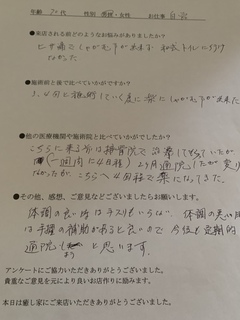 年齢 70代 性別 男性・女性 お仕事
●来店される前どのようなお悩みがありましたか?
ヒザ痛にしゃがむ事が出来ず 和式トイレに行け
なかった
●施術前と後で比べていかがですか?
3、4回と施術していく度に楽にしゃがむ事が出来た
●他の医療機関や施術院と比べていかがでしたか?
こちらに来る前は接骨院で治療してもらっていたが
(一週間に4日程)より月通院したが 変り
なかったが こちらへ4回程で楽になってきた。
●その他、感想、ご意見などございましたらお願いします。
体調の良い時は手スリもいらない 体調の悪い時
は手摺の補助があると良いので 今後も定期的
通院しようと思います。
アンケートにご協力いただきありがとうございました。
貴重なご意見を元により良いお店作りに励みます。
本日は癒し家にご来店いただきありがとうございました。